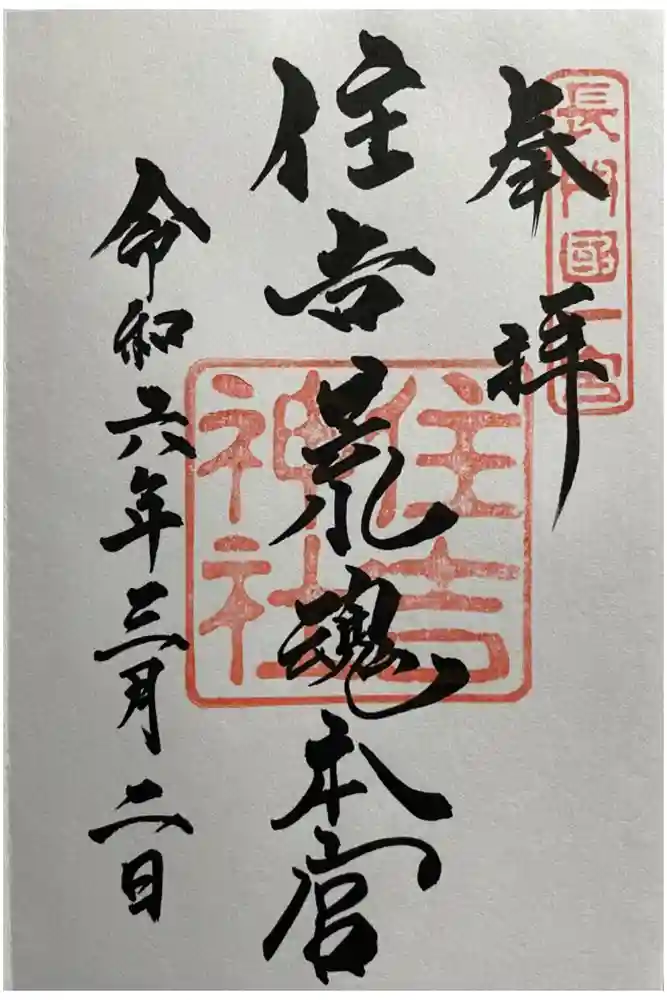 奉拝
長門國一宮
住吉荒魂本宮
住吉
神社
令和六年三月二日